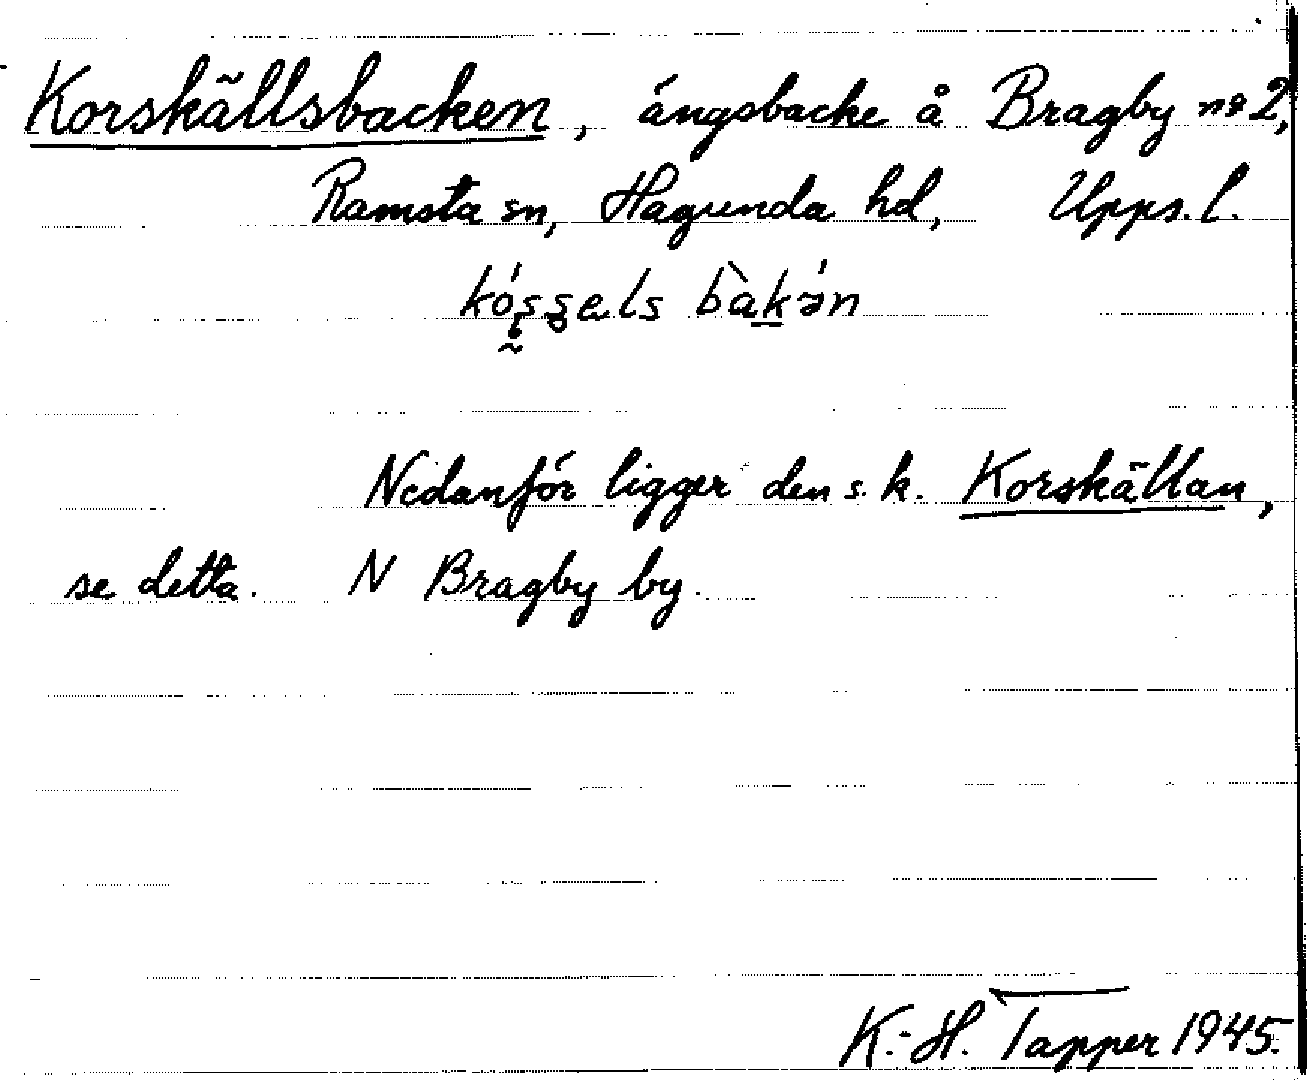 Korskällsbacken, ängsbacke å Bragby nº 2,
Ramsta sn, Hagunda hd, Upps. l.
Nedanför ligger den s. k. Korskällan,
se detta. N Bragby by.
K.-H. Tapper 1945.